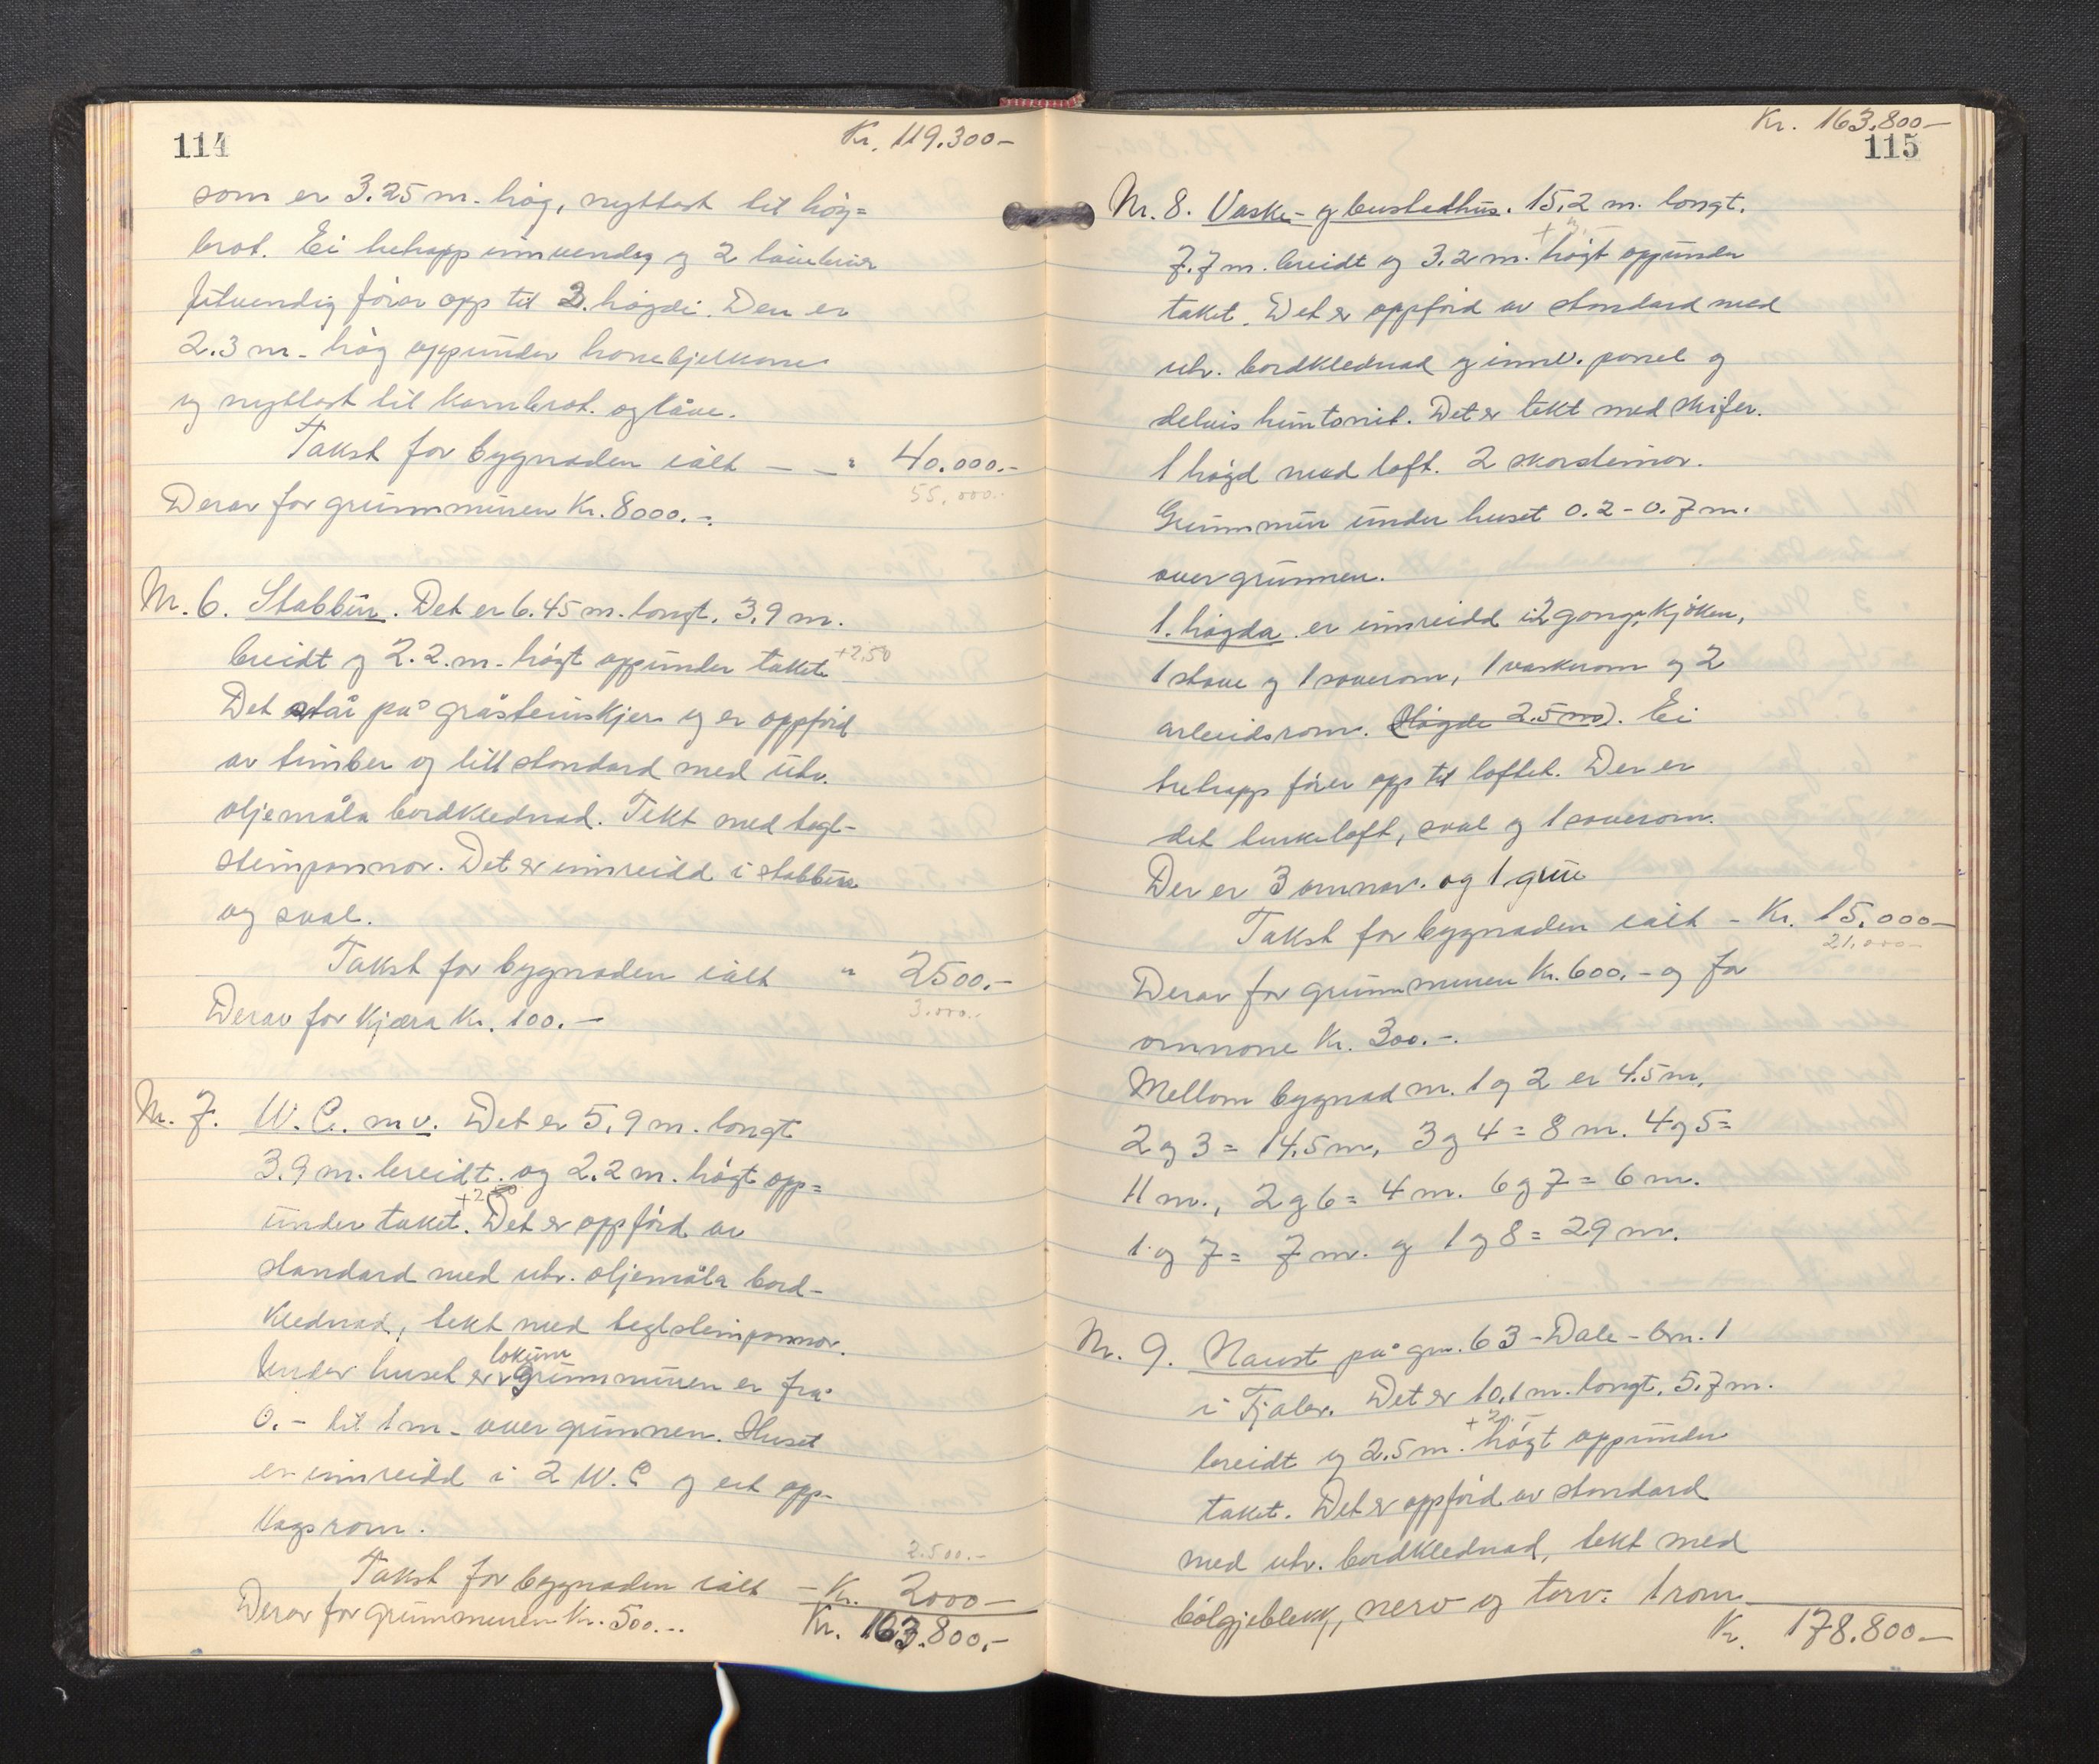 114
Kr. 119.300-
som er 3.25 m. høg, nyttast til høy=
brot. Ei hetrapp innvendig og 2 låvebruer
utvendig förar opp til 2. høgdi. Den er
2.3 m. høg oppunder hanebjelkane
og nyttast til kornbrot. og låve.
Takst for bygnaden ialt — — " 40.000.-
55.000.-
Derav for grunnmuren Kr. 8000.-.
Nr. 6. Stabbur. Det er 6.45 m. langt, 3.9 m.
breidt og 2.2. m. högt oppunder taket.
+2,50
Det står på gråsteinskjer og er oppförd
av timber og litt standard med utv.
oljemåla bordklednad. Tekt med tegl-
steinpannor. Det er innreidd i stabbur
og sval.
Takst for bygnaden ialt " 2500.-
3.000.-
Derav for kjæra Kr. 100.-
Nr. 7. W.C. m.v. Det er 5,9 m. langt
3.9 m. breidt og 2.2 m. högt opp=
+2
under taket. Det er oppförd av
standard med utv. oljemåla bord-
klednad, tekt med teglsteinpannor.
lokum
Under huset er grunnmuren er frå
0.- til 1 m. over grunnen. Huset
er innreidd i 2 W.C og eit opp-
lagsrom.
2.500.-
Takst for bygnaden ialt - Kr. 2000-
Derav for grunnmuren Kr. 500.-.
Kr. 163.800.-
Kr. 163.800-
115
Nr. 8. Vaske- og bustadhus. 15,2 m. langt.
7.7 m. breidt og 3.2 m. högt oppunder
taket. Det er oppförd av standard med
utv. bordklednad og innv. panel og
delvis huntonit. Det er tekt med skifer.
1 högd med loft. 2 skorsteinar.
Grunnmur under huset 0.2-0.7 m.
over grunnen.
1. högda er innreidd i 2 gonger, kjöken,
1 stove og 1 soverom, 1 vaskerom og 2
arbeidsrom. (Högde 2.5 m). Ei
tretrapp förer opp til loftet. Der er
det turkeloft, sval og 1 soverom.
Der er 3 omnar. og 1 grue
Takst for bygnaden ialt - Kr. 15.000-
21.000-
Derav for grunnmuren Kr. 600.- og for
omnane Kr. 300.-.
Mellom bygnad nr. 1 og 2 er 4.5 m.
2 og 3 = 14.5 m, 3 og 4 = 8 m. 4 og 5 =
11 m., 2 og 6 = 4 m. 6 og 7 = 6 m.
1 og 7 = 7 m. og 1 og 8 = 29 m.
Nr. 9. Naust på gnr. 63 - Dale - bnr. 1
i Fjaler. Det er 10,1 m. langt, 5.7 m.
+2,-
breidt og 2.5 m. högt oppunder
taket. Det er oppförd av standard
med utv. bordklednad, tekt med
bölgjeblekk, never og torv: 1 rom
Kr. 178.800-